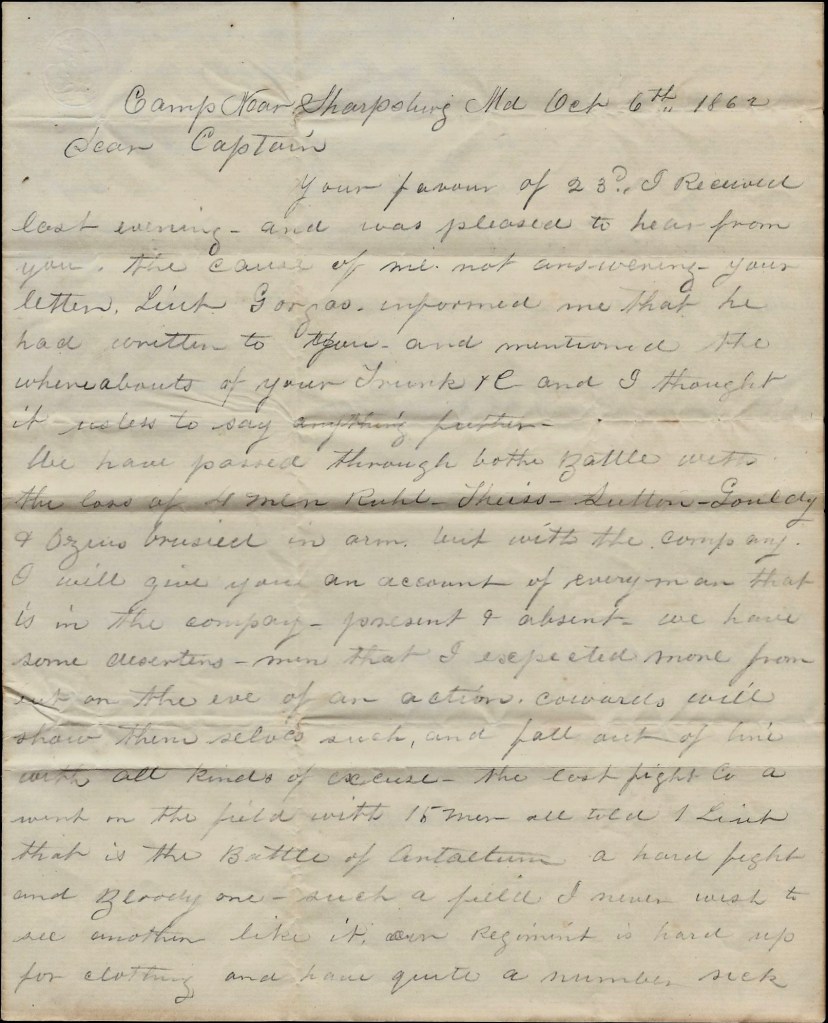 Camp Near Sharpsburg Md Oct 6th 1862
Dear Captain
Your favour of 23d, I Received
last evening - and was pleased to hear from
you. the cause of me not answering - your
letter, Liut Gorgas - informed me that he
had written to you - and mentioned the
whereabouts of your Trunk &C - and I thought
it usless to say anything further -
We have passed through bothe Battle with
the loss of 4 men Ruhl - Theiss - Sutton - Gouldy
& brusied in arm. but with the company.
I will give you an account of every man that
is in the compay - present & absent - we have
some deserters - men that I expected more from
but on the eve of an action. cowards will
show them selves such, and fall out of line
with all kinds of excuse - the last fight Co a
went on the field with 15 men all told 1 Liut
that is the Battle of Antaetum a hard fight
and Bloody one - such a field I never wish to
see another like it, our Regiment is hard up
for clothing and have quite a number sick